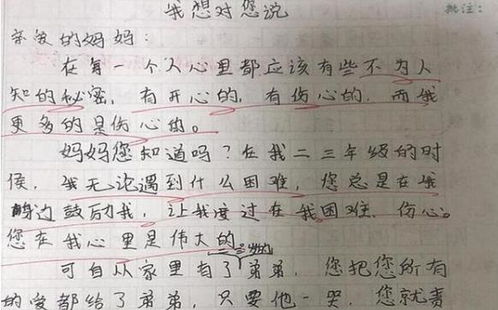 我想对您说
批注：
亲爱的妈妈：
在每一个人心里都应该有些不为人
知的秘密，有开心的，有伤心的，而我
更多的是伤心的。
妈妈您知道吗？在我二三年级的时
候，我无论遇到什么困难，您总是在我
身边鼓励我，让我度过在我困难、伤心。
您在我心里是伟大的
可自从家里有了弟弟，您把您所有
的爱都给了弟弟，只要他一哭，您就责